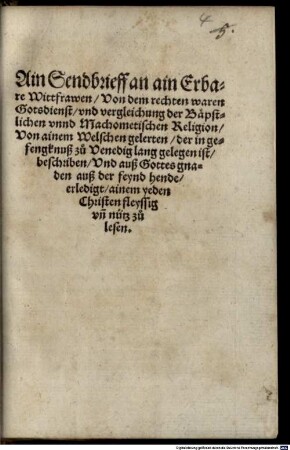 4
5.
Ain Sendbrieff an ain Erba-
re Wittfrawen / Von dem rechten waren
Gotsdienst / vnd vergleichung der Bäpst-
lichen vnnd Machometischen Religion /
Von ainem Welschen gelerten / der in ge-
fengknuß zů Venedig lang gelegen ist /
beschriben / Vnd auß Gottes gna-
den auß der feynd hende /
erledigt / ainem yeden
Christen fleyssig
vñ nütz zů
lesen.